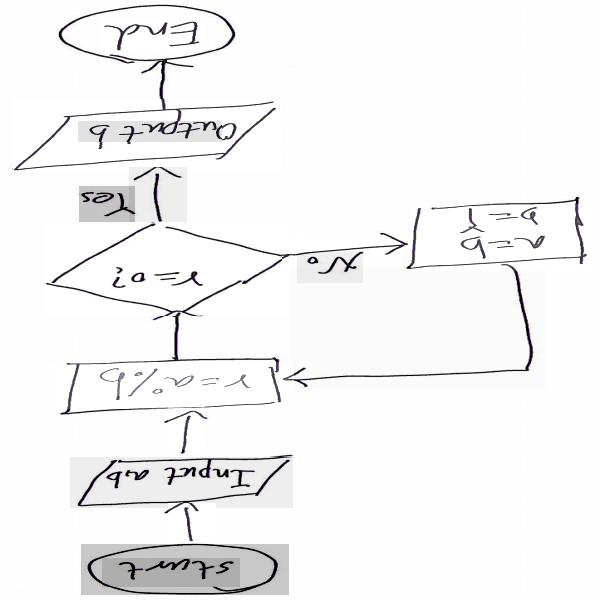 start
Input a,b
r=a%b
r=0?
No
a=b
b=r
Yes
Output b
End